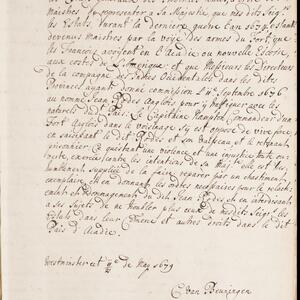 Ministre [...] representer a Sa Majesté, que nos dits Seigrs
les Estats, durant la derniere guerre l'an 1674, estants
devenus maistres par la voije des armes du Fort que
les Francois avoijent en l'Acadie ou nouvelle Escosse,
aux costes de l'Amerique et que Messieurs les Directeurs
de la compagnie des Indes Occidentales dans les dits
Provinces ayant donné commission le 11e Septembre 1676
au nommé Jean Rodes Anglois pour y traffiquer avec les
naturels du dit Païs. Le Capitaine Hampton Commandant d'un
Fort Anglois dans le voisinage s'y est opposé de vive force,
en saisissant le dit Rodes et son Vaisseau et le retenant
prisonnier Ce qu'estant une violence et une injustice toute
contre les intentions de Sa Maj. Elle est tres
humblement suppliée de la faire reparer par un chastiment
exemplaire, et en donnant les ordres necessaires pour le relaschement
et desdommagement du dit Jean Rodes et en interdisant
a Ses Sujets de ne troubler plus ceux de nos dits Seigrs les
Estats dans leur Commerce et autres droits dans le dit
Païs d'Acadie.
Westminster ce de May 1679
C. van Beuningen